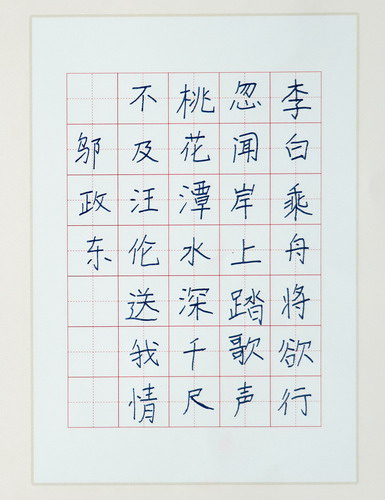 李白乘舟将欲行
忽闻岸上踏歌声
桃花潭水深千尺
不及汪伦送我情
邬政东